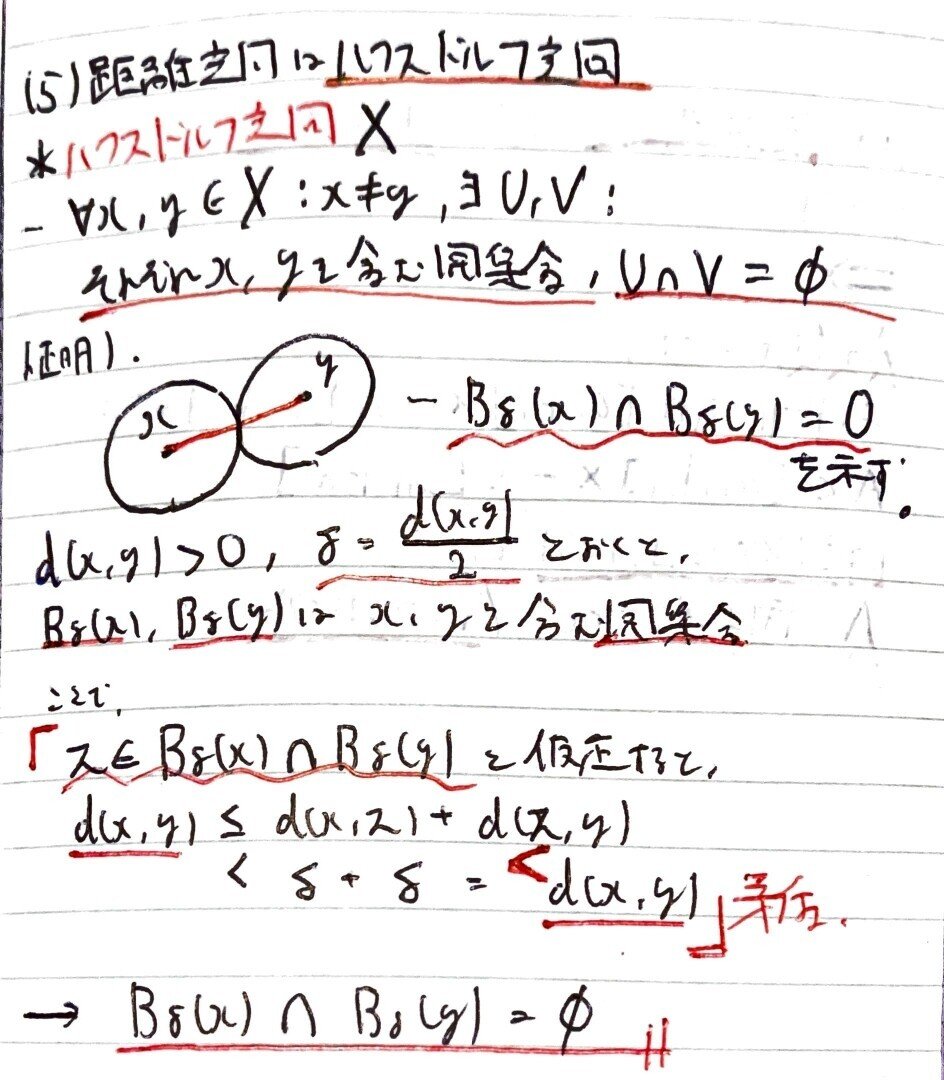 (5)距離空间はハウスドルフ空间
*ハウスドルフ空间 X
- ∀x, y ∈ X : x≠y, ∃U, V :
それぞれ x, y を含む開集合, U∩V = φ
証明).
x y
- Bδ(x) ∩ Bδ(y) = 0
を示す。
d(x,y)>0, δ = d(x,y)/2 とおくと,
Bδ(x), Bδ(y) は x, y を含む開集合
ここで,
「z∈ Bδ(x) ∩ Bδ(y) と仮定すると,
d(x,y) ≤ d(x,z) + d(z,y)
< δ + δ = < d(x,y)」矛盾.
→ Bδ(x) ∩ Bδ(y) = φ